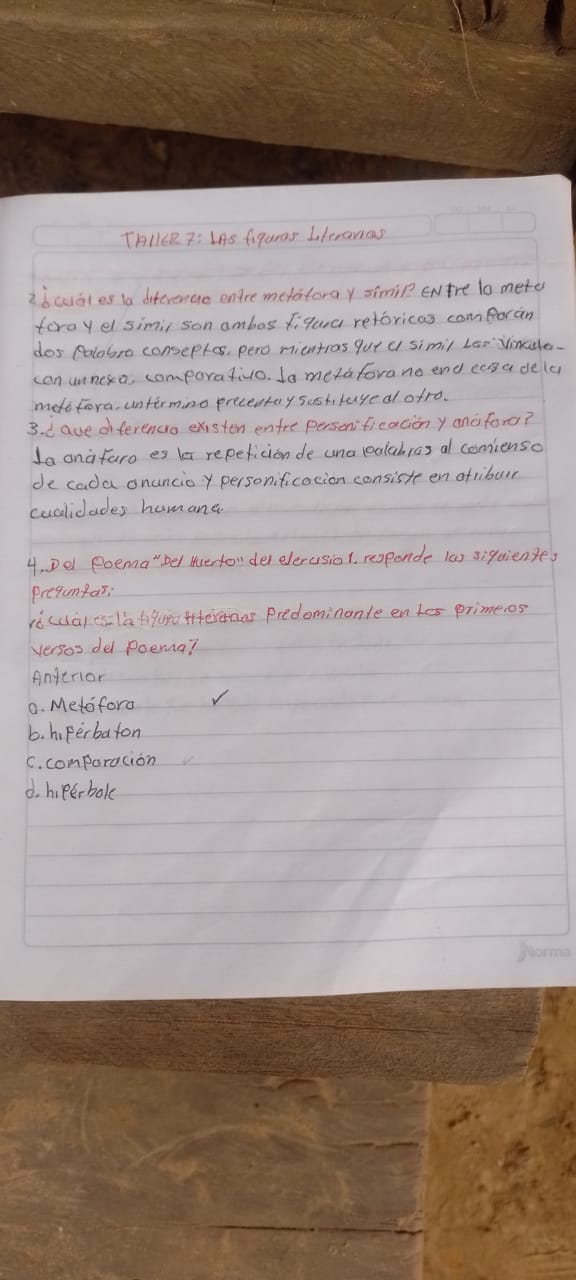 TAllER 7: LAS figuras literarias
2 ¿cuál es la diferencia entre metáfora y símil? ENtre la meta
fora y el simil son ambos figura retóricas comparán
dos Palabra conseptos, pero mientras que el simil Los vincula
con un nexo, comparativo. La metáfora no end cosa de la
metáfora. un término precenta y sustituye al otro.
3.¿ que diferencia existen entre Personificación y anáfora?
La anáfaro es la repetición de una palabras al comienso
de cada anuncio y personificación consiste en atribuir
cualidades humana.
4. Del Poema "Del Huerto" del ejercusio 1. responde las siguientes
Preguntas:
1¿cuál es la figura literarias Predominante en los primeros
versos del Poema?
Anterior
a. Metáfora ✓
b. hipérbaton
c. comparación
d. hipérbole
Norma